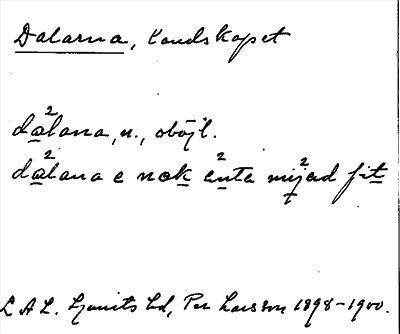 Dalarna, landskapet
da²lana, n., oböjl.
da²lana e nok e²nte mi²jed fit
L A L. Hjanits ld, Per Larsson 1898-1900.